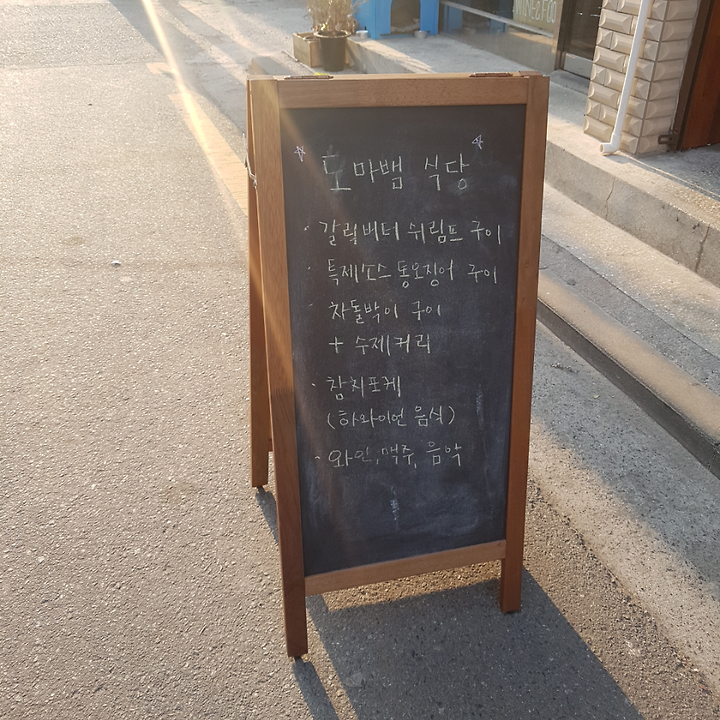 도마뱀 식당
· 갈릭버터 쉬림프 구이
· 특제소스 통오징어 구이
· 차돌박이 구이
+ 수제커리
· 참치포케
(하와이언 음식)
· 와인, 맥주, 음악